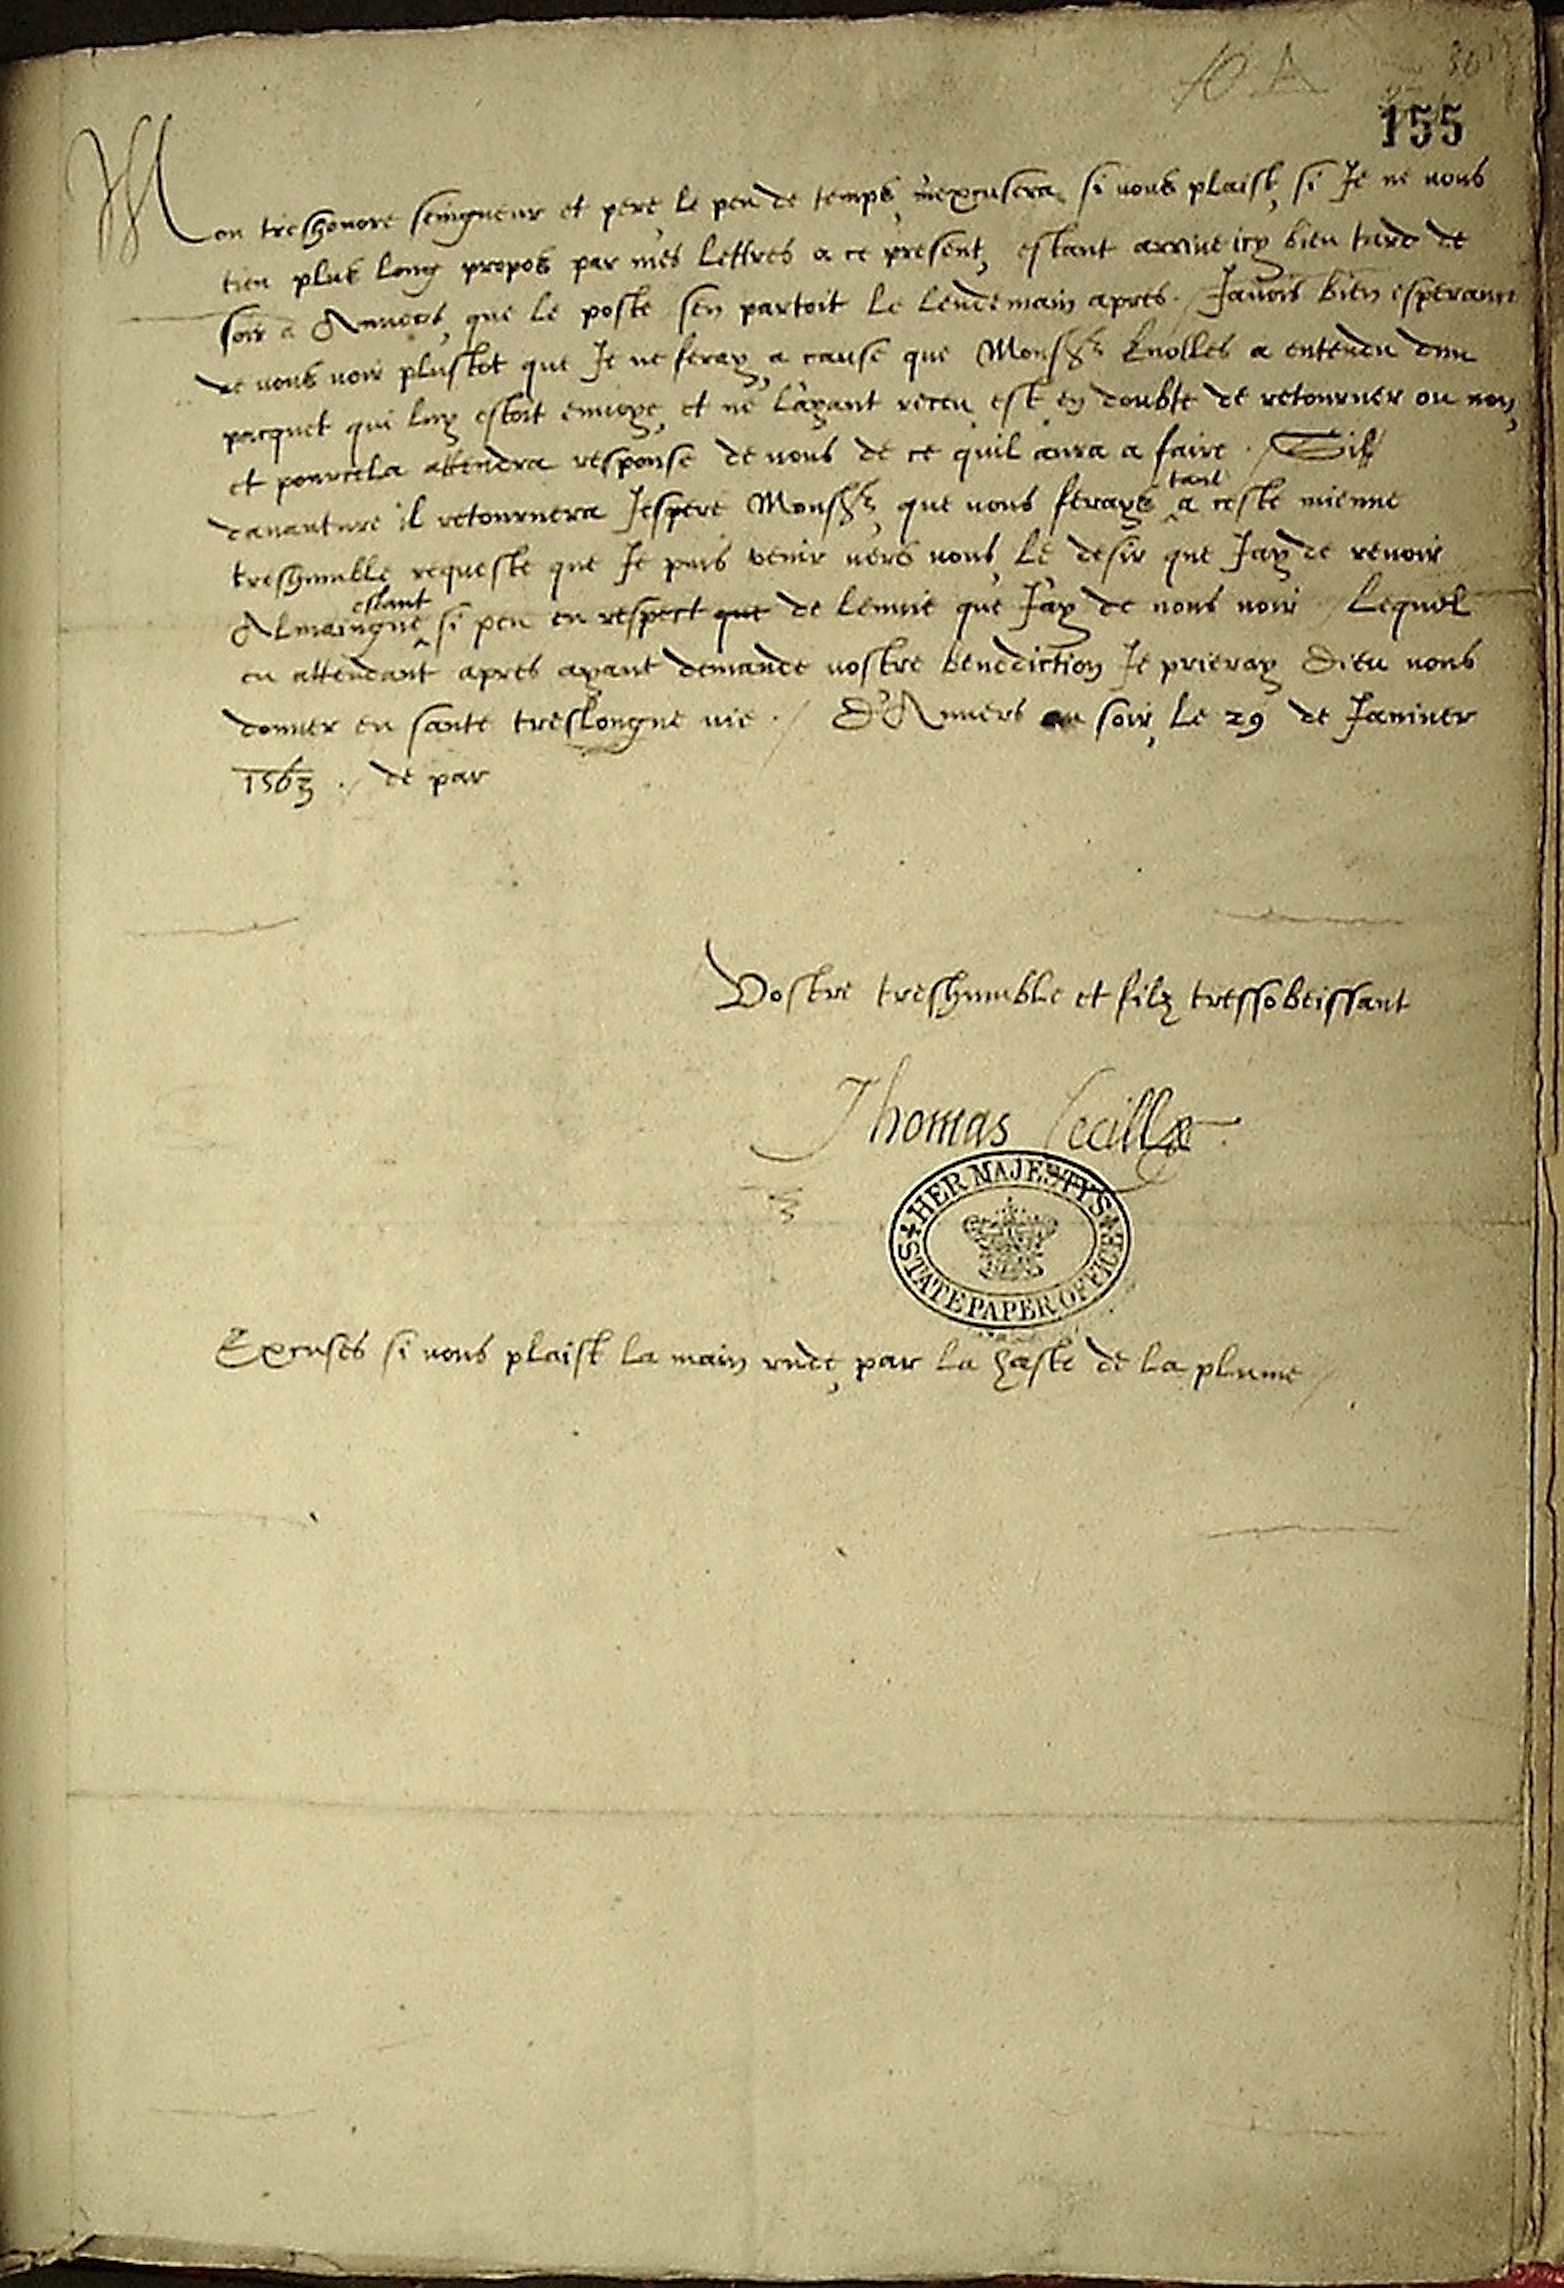 155
Mon treshonore seingneur et pere, le peu de temps, mexcusera, si vous plaist, si Je ne vous
tien plus long propos par mes lettres a ce present, estant arrive icy bien tard de
soir a Anvers, que le poste sen partoit le lendemain apres. / Javois bien esperance
de vous voir plustot que Je ne feray, a cause que Monsr Knolles a entendu dun
pacquet qui luy estoit envoye, et ne layant receu, est en doubte de retourner ou non,
et pourcela attendra response de vous de ce quil aura a faire. / Sil
davanture il retournera Jespere Monsr, que vous ferays tant a ceste mienne
treshumble requeste que Je puis venir vers vous, le desir que Jay de revoir
Almaingne estant si peu en respect que de lenvie que Jay de vous voir / Lequel
en attendant apres ayant demande vostre benediction Je prieray Dieu vous
donner en sante treslongue vie. / D'Anvers au soir, le 29 de Janvier
1563 ./ de par
Vostre treshumble et filz tressobeissant
Thomas Cecill
HER MAJESTY'S STATE PAPER OFFICE
Excuses si vous plaist la main rude, par la haste de la plume /